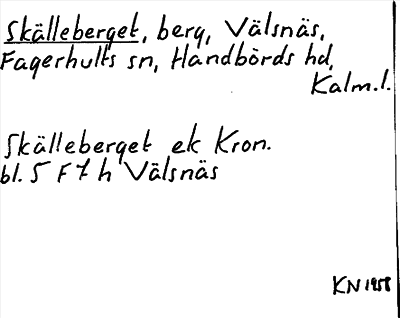 Skälleberget, berg, Välsnäs,
Fagerhults sn, Handbörds hd,
Kalm.l.
Skälleberget ek Kron.
bl. 5 F 7 h Välsnäs
KN 1958